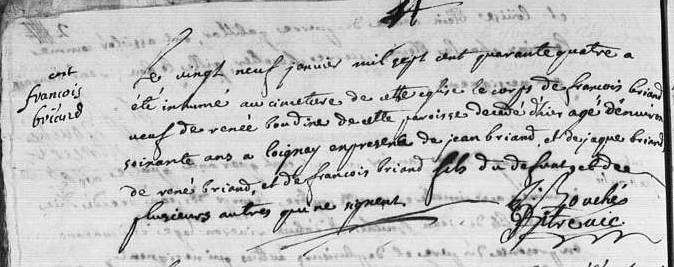 ent
françois
briard
Le vingt neuf janvier mil sept cent quarante quatre a
été inhumé au cimetiere de cette eglise le corps de françois briand
veuf de renée boudine de cette paroisse decedé d'hier agé d'environ
soixante ans a loigney en presence de jean briand, et de jaque briand
de rené briand, et de françois briand fils du defunt et de
plusieurs autres qui ne signent
Bouchés